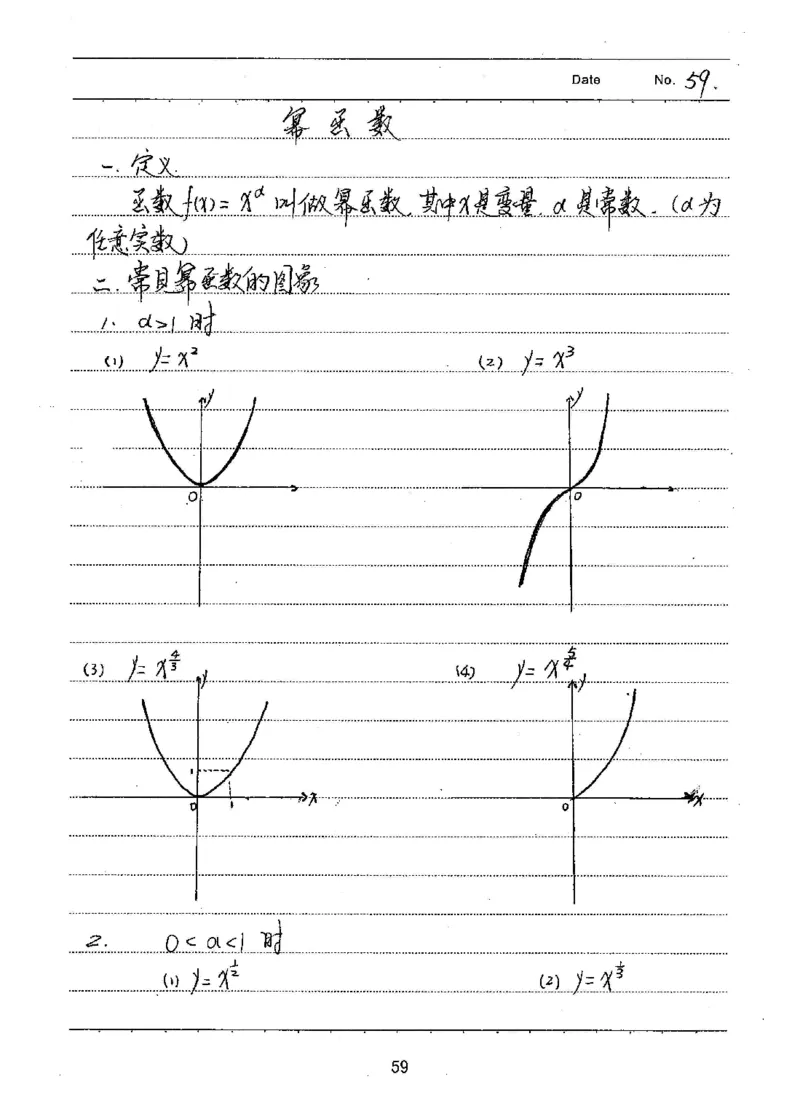 Date No. 59.
幂函数
一. 定义.
函数 f(x) = x^α 叫做幂函数, 其中x是变量, α是常数. (α为
任意实数)
二. 常见幂函数的图象
1. α>1 时
(1) y = x²
(2) y = x³
y
O
y
O
(3) y = x^(4/3)
(4) y = x^(5/4)
y
1
O 1 x
y
O x
2. 0<α<1 时
(1) y = x^(1/2)
(2) y = x^(1/3)
59